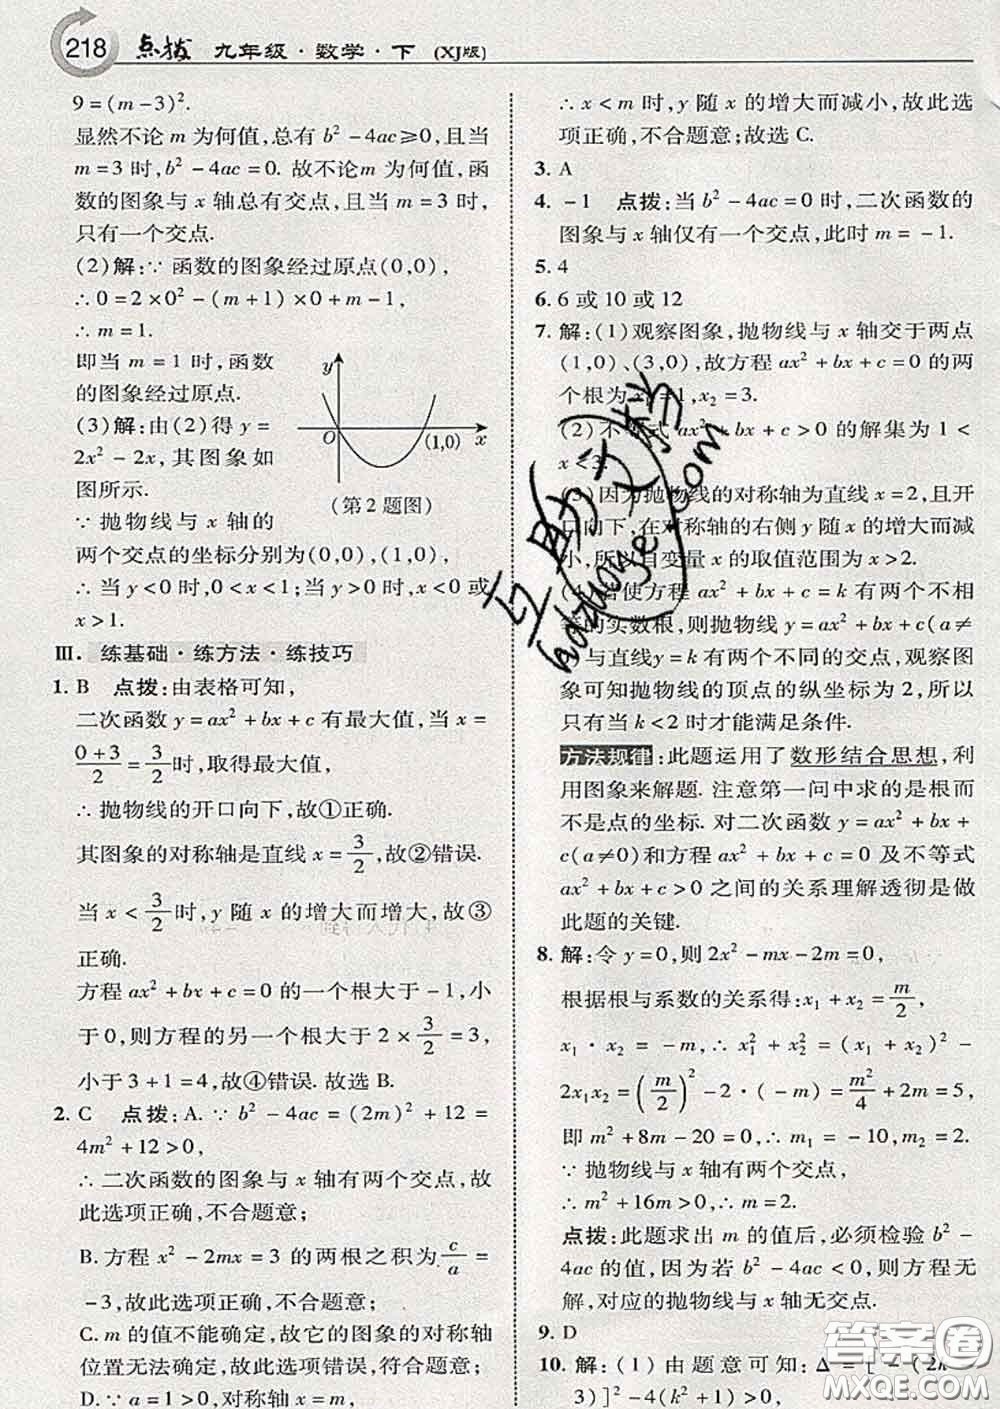 218 点拨 九年级·数学·下 (XJ版)
9=(m-3)².
显然不论 m 为何值,总有 b²-4ac≥0,且当
m=3 时,b²-4ac=0. 故不论m 为何值,函
数的图象与 x 轴总有交点,且当 m=3 时,
只有一个交点.
(2)解:∵ 函数的图象经过原点(0,0),
∴ 0=2×0²-(m+1)×0+m-1,
∴ m=1.
即当 m=1 时,函数
的图象经过原点.
(3)解:由(2)得 y=
2x²-2x,其图象如
图所示.
y
O
(1,0)
x
(第2题图)
∵ 抛物线与 x 轴的
两个交点的坐标分别为(0,0),(1,0),
∴ 当 y<0 时,0<x<1;当 y>0 时,x<0 或
x>1.
Ⅲ. 练基础·练方法·练技巧
1. B 点拨:由表格可知,
二次函数 y=ax²+bx+c 有最大值,当 x=
(0+3)/2=3/2时,取得最大值,
∴ 抛物线的开口向下,故①正确.
其图象的对称轴是直线 x=3/2,故②错误.
当 x<3/2时,y 随 x 的增大而增大,故③
正确.
方程 ax²+bx+c=0 的一个根大于-1,小
于0,则方程的另一个根大于 2×3/2=3,
小于 3+1=4,故④错误. 故选 B.
2. C 点拨:A. ∵ b²-4ac=(2m)²+12=
4m²+12>0,
∴ 二次函数的图象与 x 轴有两个交点,故
此选项正确,不合题意;
B. 方程 x²-2mx=3 的两根之积为c/a=
-3,故此选项正确,不合题意;
C. m 的值不能确定,故它的图象的对称轴
位置无法确定,故此选项错误,符合题意;
D. ∵ a=1>0,对称轴 x=m,
∴ x<m 时,y 随 x 的增大而减小,故此选
项正确,不合题意;故选 C.
3. A
4. -1 点拨:当 b²-4ac=0时,二次函数的
图象与x 轴仅有一个交点,此时 m=-1.
5. 4
6. 6 或 10 或 12
7. 解:(1)观察图象,抛物线与 x 轴交于两点
(1,0)、(3,0),故方程 ax²+bx+c=0 的两
个根为 x₁=1,x₂=3.
(2)不等式 ax²+bx+c>0 的解集为 1<
x<3.
(3)因为抛物线的对称轴为直线 x=2,且开
口向下,在对称轴的右侧 y 随 x 的增大而减
小,所以自变量 x 的取值范围为 x>2.
(4)若使方程 ax²+bx+c=k 有两个不相
等的实数根,则抛物线 y=ax²+bx+c(a≠
0)与直线y=k 有两个不同的交点,观察图
象可知抛物线的顶点的纵坐标为 2,所以
只有当 k<2 时才能满足条件.
方法规律:此题运用了数形结合思想,利
用图象来解题. 注意第一问中求的是根而
不是点的坐标. 对二次函数 y=ax²+bx+
c(a≠0)和方程 ax²+bx+c=0 及不等式
ax²+bx+c>0 之间的关系理解透彻是做
此题的关键.
8. 解:令 y=0,则 2x²-mx-2m=0,
根据根与系数的关系得:x₁+x₂=m/2,
x₁·x₂=-m,∴ x₁²+x₂²=(x₁+x₂)²-
2x₁x₂=(m/2)²-2·(-m)=m²/4+2m=5,
即 m²+8m-20=0,∴ m₁=-10,m₂=2.
∵ 抛物线与 x 轴有两个交点,
∴ m²+16m>0,∴ m=2.
点拨:此题求出 m 的值后,必须检验 b²-
4ac 的值,因为若 b²-4ac<0,则方程无
解,对应的抛物线与 x 轴无交点.
9. D
10. 解:(1)由题意可知:Δ=[-(2k-
3)]²-4(k²+1)>0,
互助文档
hdzhange.com
答案圈
MXQE.COM